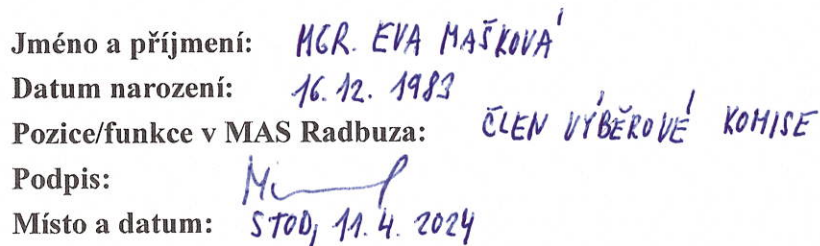 Jméno a příjmení: MGR. EVA MAŠKOVÁ
Datum narození: 16. 12. 1983
Pozice/funkce v MAS Radbuza: ČLEN VÝBĚROVÉ KOMISE
Podpis:
Místo a datum: STOD, 11. 4. 2024